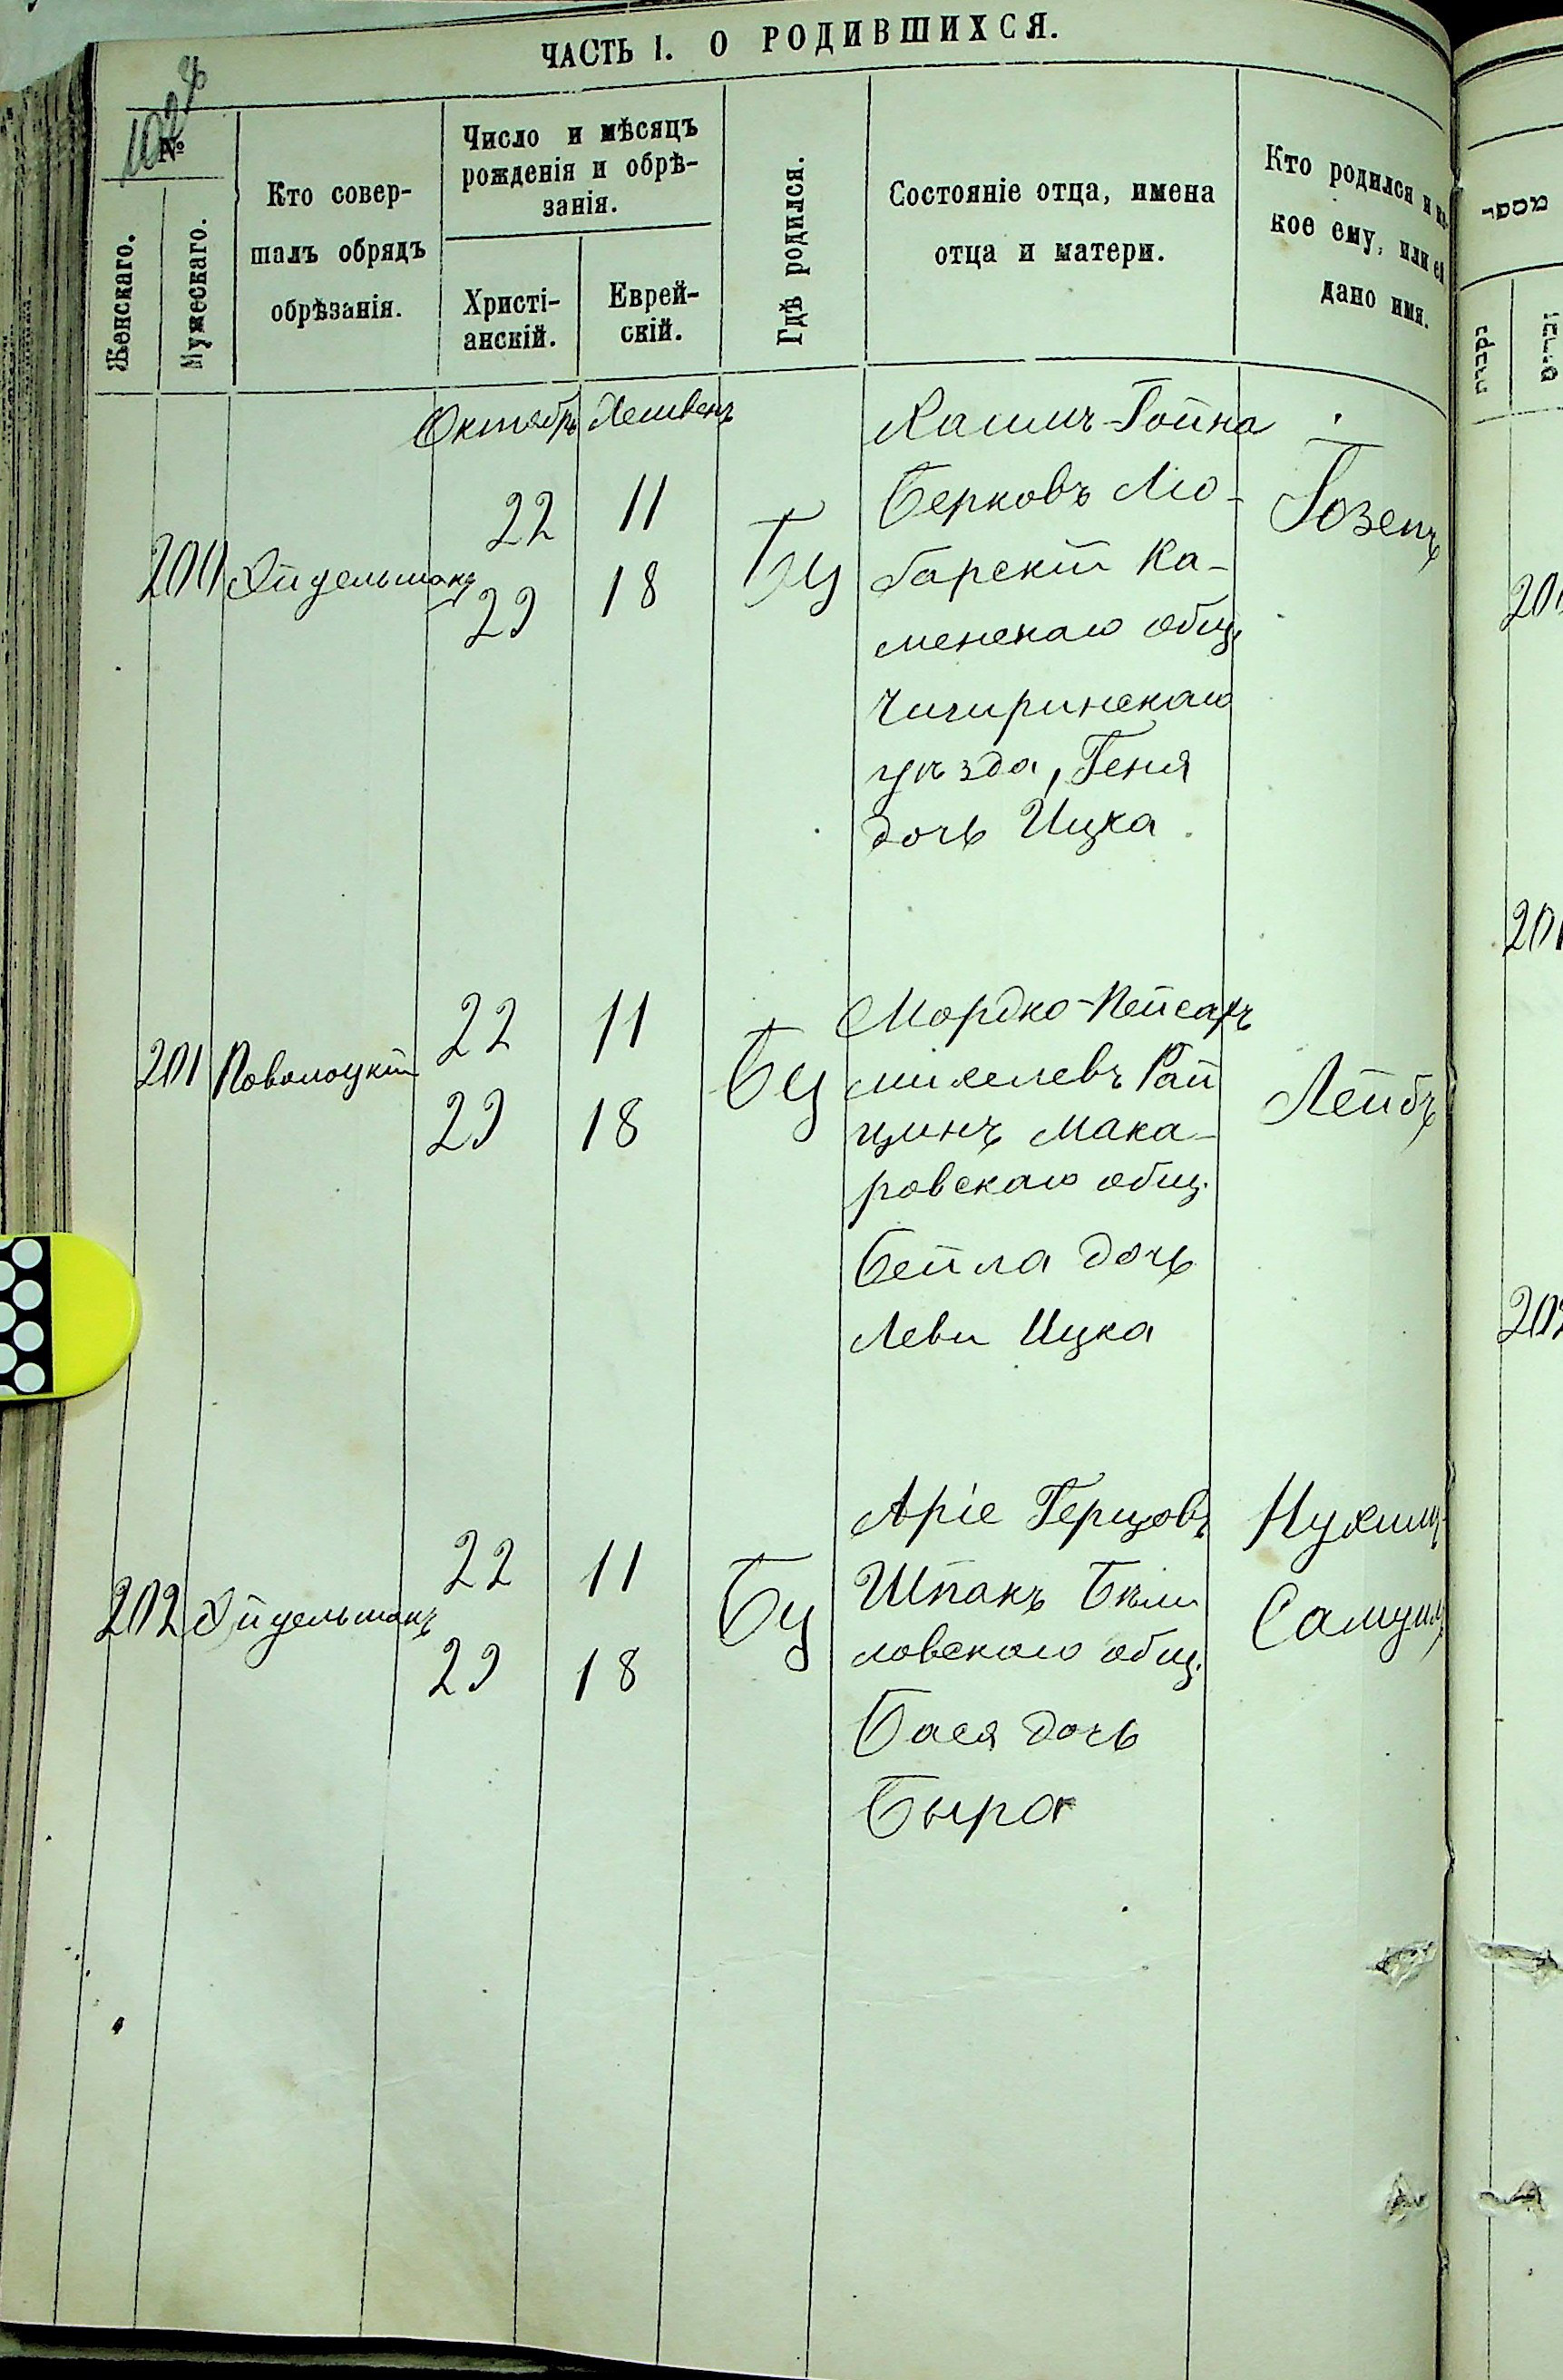 ЧАСТЬ I. О РОДИВШИХСЯ.
№
Женскаго.
Мужескаго.
Кто совер-
шалъ обрядъ
обрѣзанія.
Число и мѣсяцъ
рожденія и обрѣ-
занія.
Христі-
анскій.
Еврей-
скій.
Гдѣ родился.
Состояніе отца, имена
отца и матери.
Кто родился и ка-
кое ему, или ей
дано имя.
Октябрь Хешвенъ
200 Эйдельманъ
22 11
29 18
Бц
Калманъ-Гойна
Берковъ Лю-
барскій Ка-
менскаго общ.
Чигиринскаго
уѣзда, Геня
дочь Ицка
Іозепъ
201 Поволоцкій
22 11
29 18
Бц
Мордко-Пейсахъ
Михелевъ Рай
цинъ Мака-
ровскаго общ.
Бейла дочь
Леви Ицка
Лейбъ
202 Эйдельманъ
22 11
29 18
Бц
Аріе Герцовъ
Шпакъ Бѣли
ловскаго общ.
Бася дочь
Бера
Нухимъ
Самуилъ
מספר
200
201
202